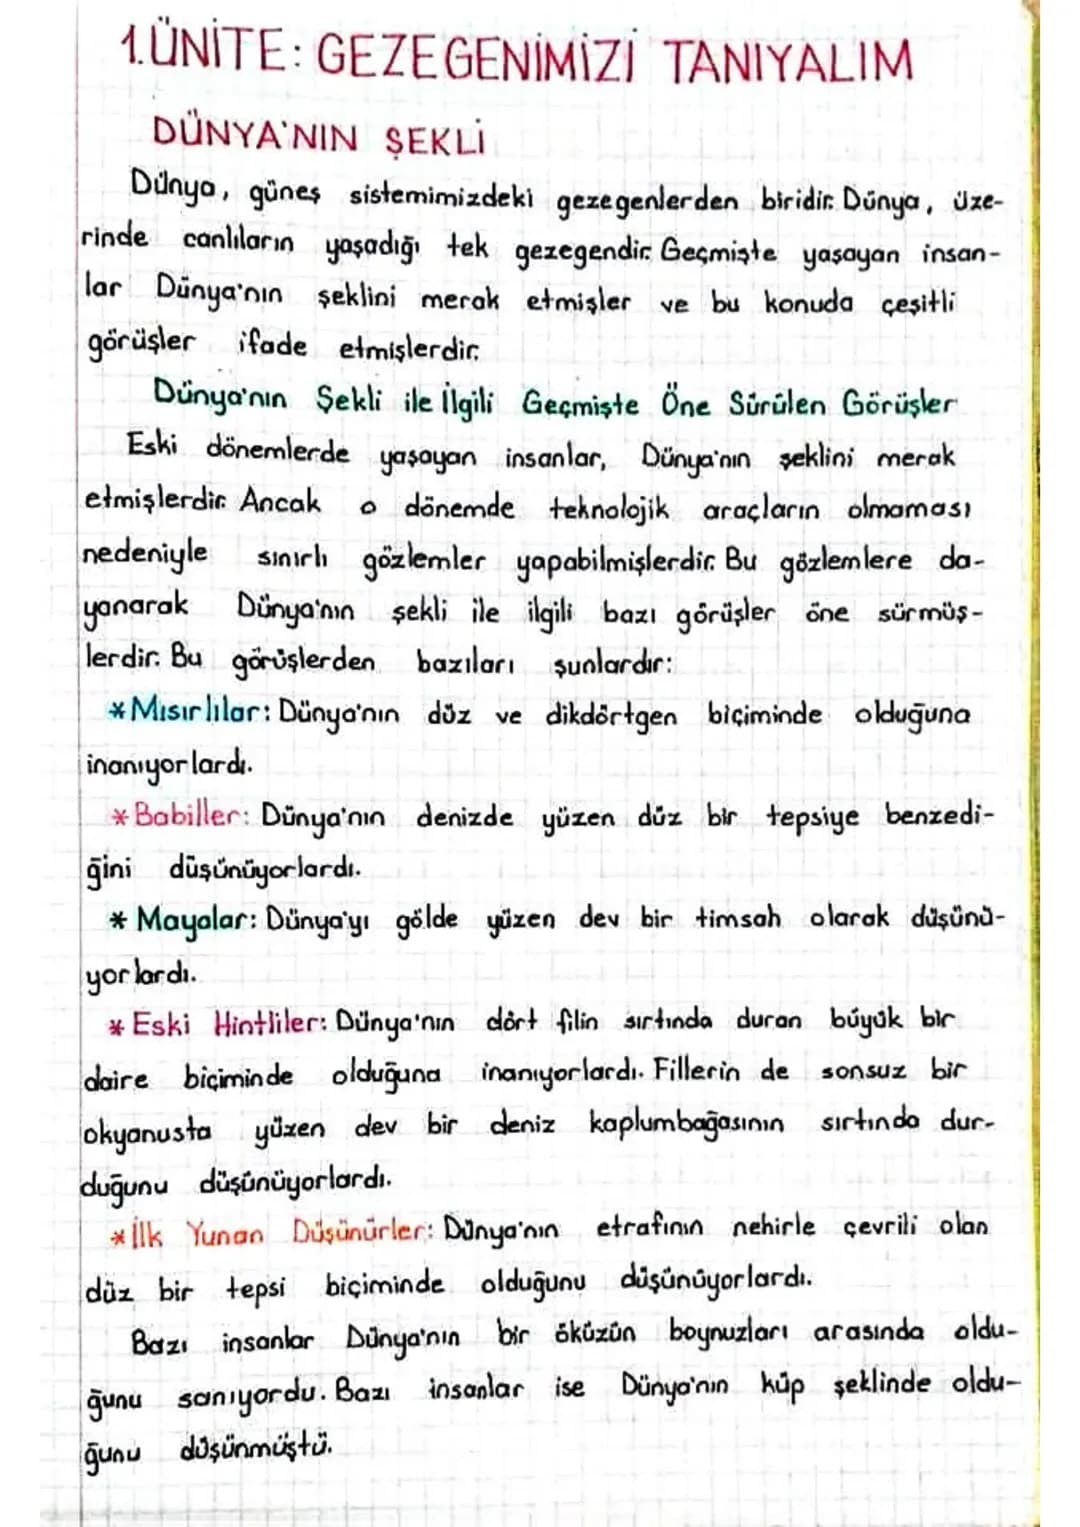 1.ÜNİTE: GEZEGENİMİZİ TANIYALIM
DÜNYA'NIN ŞEKLİ
Dünya, güneş sistemimizdeki gezegenlerden biridir. Dünya, üze-
rinde canlıların yaşadığı tek gezegendir. Geçmişte yaşayan insan-
lar Dünya'nın şeklini merak etmişler ve bu konuda çeşitli
görüşler ifade etmişlerdir.
Dünya'nın Şekli ile İlgili Geçmişte Öne Sürülen Görüşler
Eski dönemlerde yaşayan insanlar, Dünya'nın şeklini merak
etmişlerdir. Ancak o dönemde teknolojik araçların olmaması
nedeniyle sınırlı gözlemler yapabilmişlerdir. Bu gözlemlere da-
yanarak Dünya'nın şekli ile ilgili bazı görüşler öne sürmüş-
lerdir. Bu görüşlerden bazıları şunlardır:
*Mısırlılar: Dünya'nın düz ve dikdörtgen biçiminde olduğuna
inanıyorlardı.
*Babiller: Dünya'nın denizde yüzen düz bir tepsiye benzedi-
ğini düşünüyorlardı.
* Mayalar: Dünya'yı gölde yüzen dev bir timsah olarak düşünü-
yorlardı.
* Eski Hintliler: Dünya'nın dört filin sırtında duran büyük bir
daire biçiminde olduğuna inanıyorlardı. Fillerin de sonsuz bir
okyanusta yüzen dev bir deniz kaplumbağasının sırtında dur-
duğunu düşünüyorlardı.
*İlk Yunan Düşünürler: Dünya'nın etrafının nehirle çevrili olan
düz bir tepsi biçiminde olduğunu düşünüyorlardı.
Bazı insanlar Dünya'nın bir öküzün boynuzları arasında oldu-
ğunu sanıyordu. Bazı insanlar ise Dünya'nın küp şeklinde oldu-
ğunu düşünmüştü.